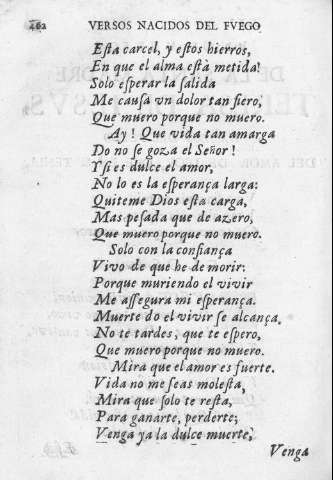 262 VERSOS NACIDOS DEL FVEGO
Eſta carcel, y eſtos hierros,
En que el alma eſtà metida!
Solo eſperar la ſalida
Me cauſa vn dolor tan fiero,
Que muero porque no muero.
Ay! Que vida tan amarga
Do no se goza el Señor!
Y ſi es dulce el amor,
No lo es la eſperança larga:
Quiteme Dios eſta carga,
Mas peſada que de azero,
Que muero porque no muero.
Solo con la confiança
Vivo de que he de morir:
Porque muriendo el vivir
Me aſſegura mi eſperança.
Muerte do el vivir ſe alcança,
No te tardes, que te eſpero,
Que muero porque no muero.
Mira que el amor es fuerte.
Vida no me ſeas moleſta,
Mira que ſolo te reſta,
Para ganarte, perderte;
Venga ya la dulce muerte,
Venga